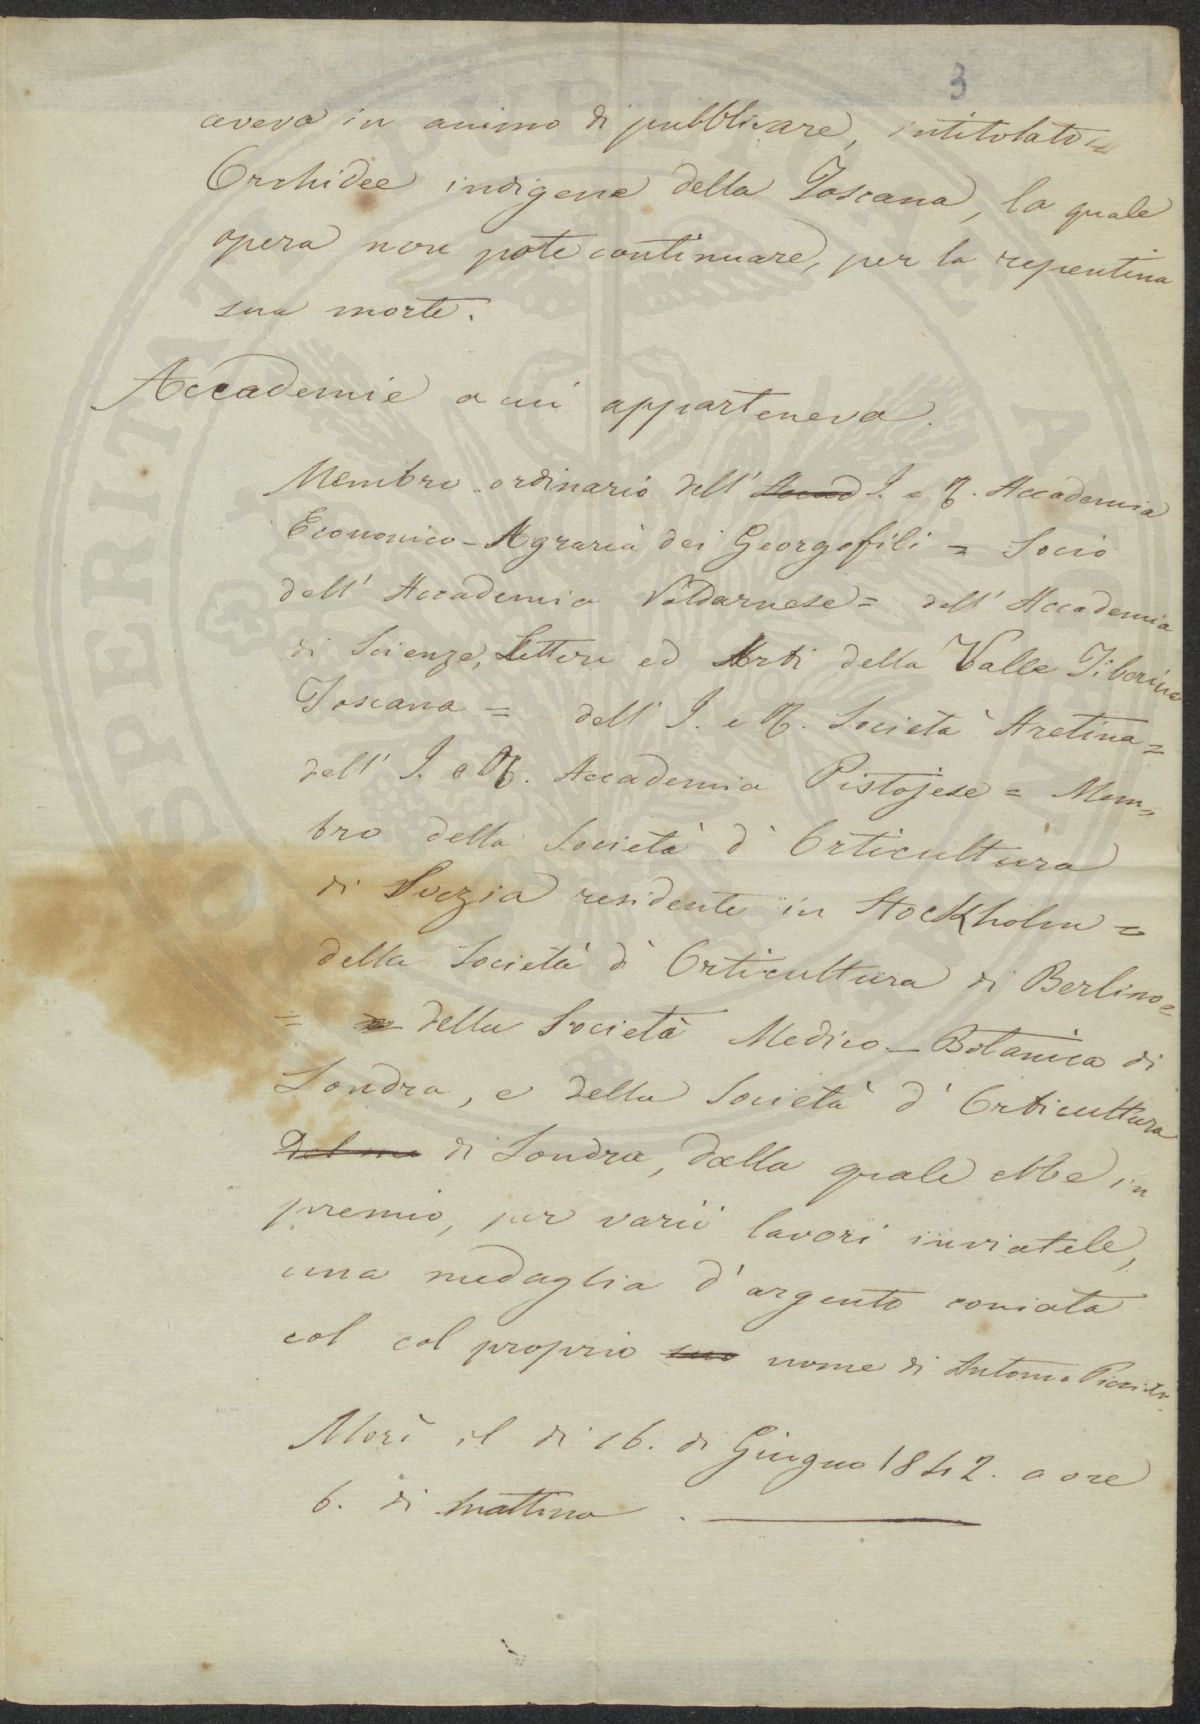 3
aveva in animo di pubblicare, intitolato =
Orchidee indigene della Toscana, la quale
opera non potè continuare, per la repentina
sua morte.
Accademie a cui apparteneva.
Membro ordinario dell' Accad I. e R. Accademia
Economico-Agraria dei Georgofili = Socio
dell' Accademia Valdarnese = dell' Accademia
di Scienze, Lettere ed Arti della Valle Tiberina
Toscana = dell' I. e R. Società Aretina =
dell' I. e R. Accademia Pistojese = Mem=
bro della Società d' Orticultura
di Svezia residente in Stockholm =
della Società d' Orticultura di Berlino =
= e della Società Medico-Botanica di
Londra, e della Società d' Orticultura
di Londra, dalla quale ebbe in
premio, per varii lavori inviatele,
una medaglia d' argento coniata
col col proprio suo nome di Antonio
Morì il dì 16. di Giugno 1842. a ore
6. di mattina.